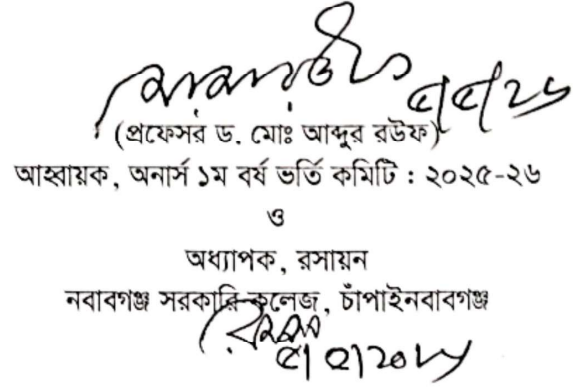 ৫/৫/২৬
(প্রফেসর ড. মোঃ আব্দুর রউফ)
আহ্বায়ক, অনার্স ১ম বর্ষ ভর্তি কমিটি : ২০২৫-২৬
ও
অধ্যাপক, রসায়ন
নবাবগঞ্জ সরকারি কলেজ, চাঁপাইনবাবগঞ্জ